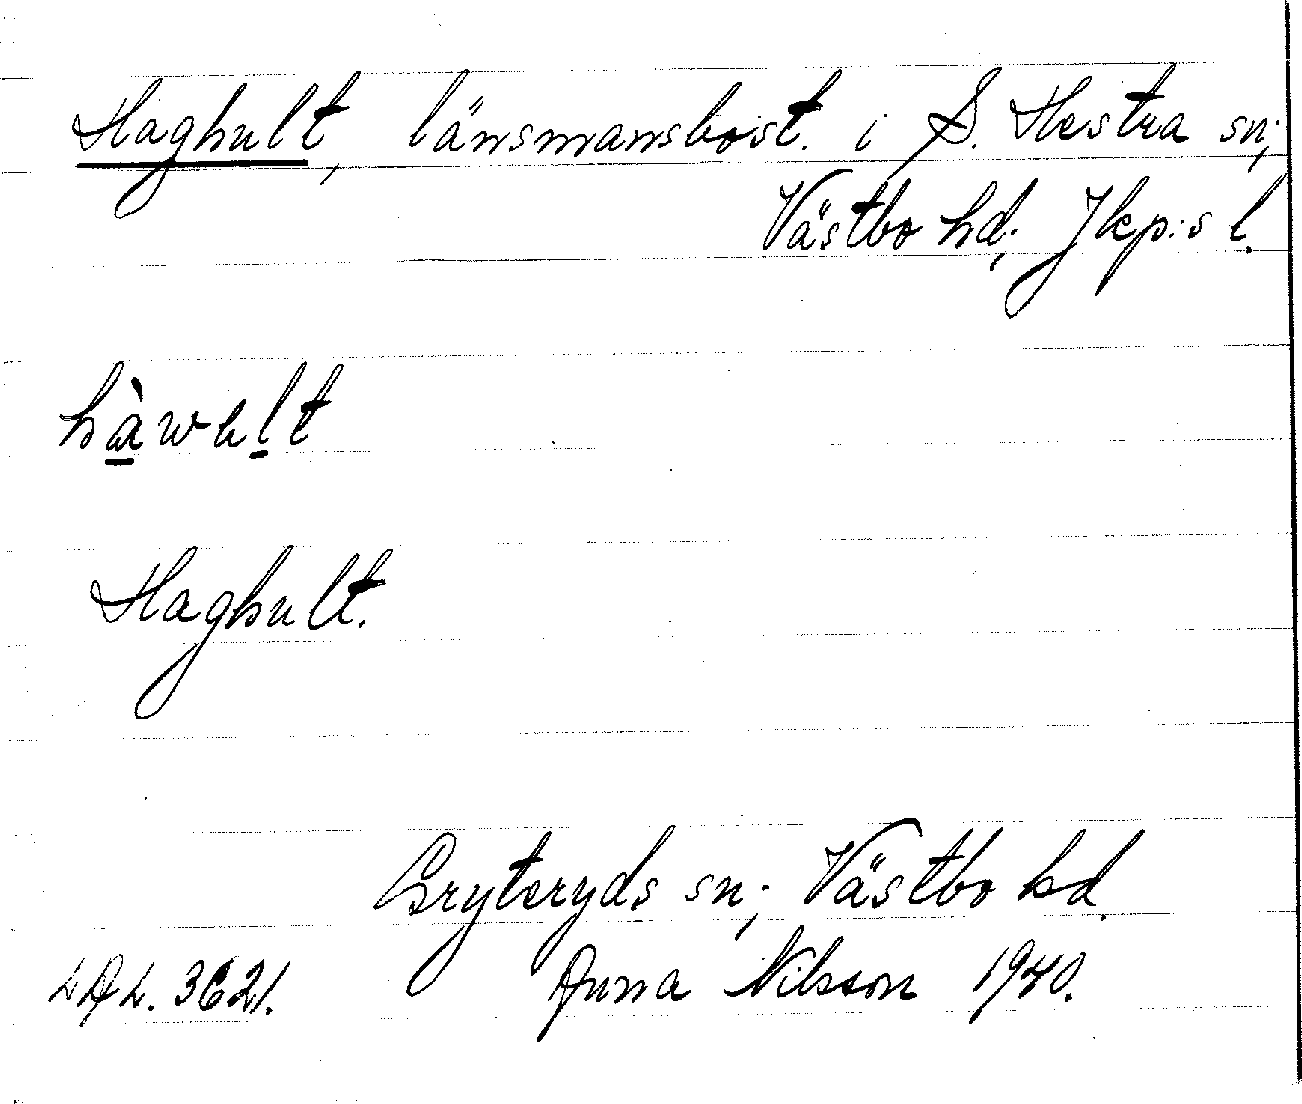 Haghult, länsmansbost. i S. Hestra sn;
Västbo hd; Jkp:s l.
hàwult
Haghult.
Gryteryds sn; Västbo hd.
LAL. 3621. Anna Nilsson 1940.